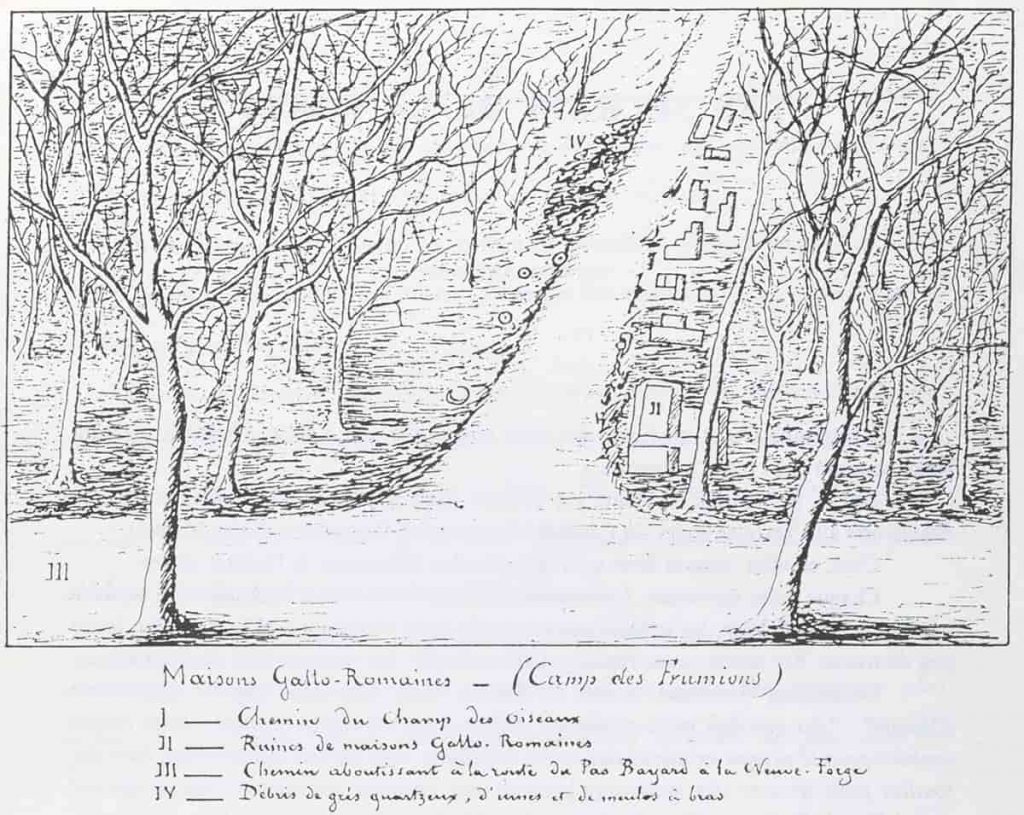 IV
II
III
Maisons Gallo-Romaines — (Camp des Frumions)
I — Chemin du Champ des Oiseaux
II — Ruines de maisons Gallo-Romaines
III — Chemin aboutissant à la route du Pas Bayard à la Neuve-Forge
IV — Débris de grés quartzeux, d'urnes et de meules à bras